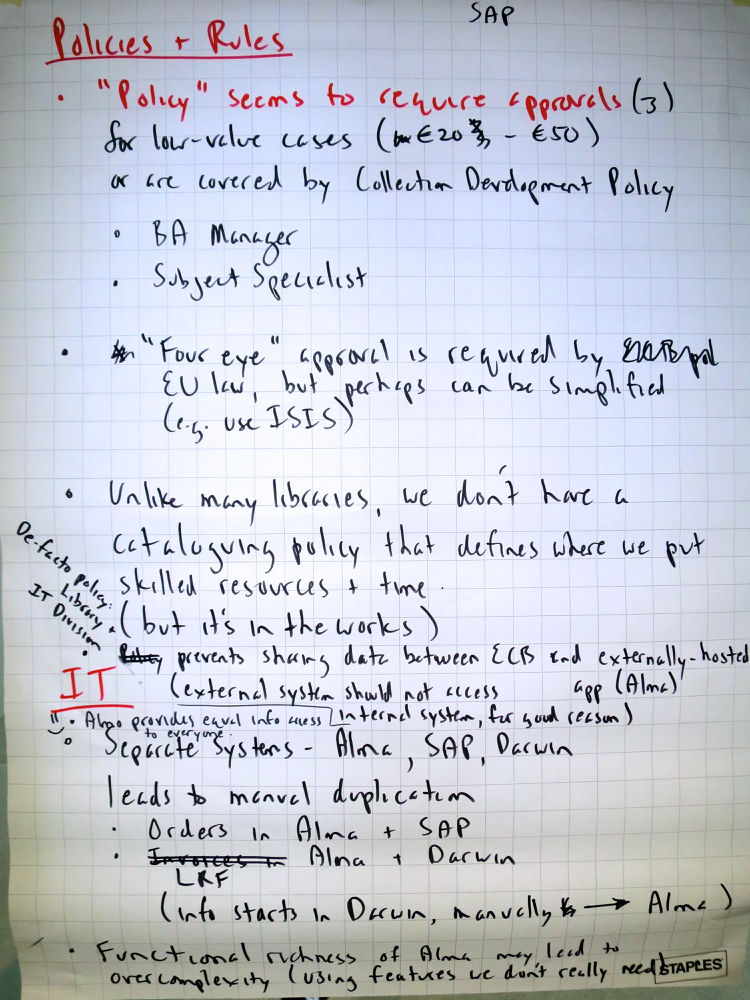 SAP
Policies + Rules
• "Policy" seems to require approvals (3)
for low-value cases ( €20 - €50)
or are covered by Collection Development Policy
• BA Manager
• Subject Specialist
• "Four eye" approval is required by
EU law, but perhaps can be simplified
(e.g. use ISIS)
• Unlike many libraries, we don't have a
cataloguing policy that defines where we put
skilled resources + time.
(but it's in the works)
De-facto policy:
Library +
IT Division
• prevents sharing data between ECB and externally-hosted
app (Alma)
(external system should not access
internal system, for good reason)
IT
• Alma provides equal info access
to everyone.
• Separate Systems - Alma, SAP, Darwin
leads to manual duplication
• Orders in Alma + SAP
• Invoices in Alma + Darwin
LRF
(info starts in Darwin, manually → Alma)
• Functional richness of Alma may lead to
overcomplexity (using features we don't really need)
STAPLES